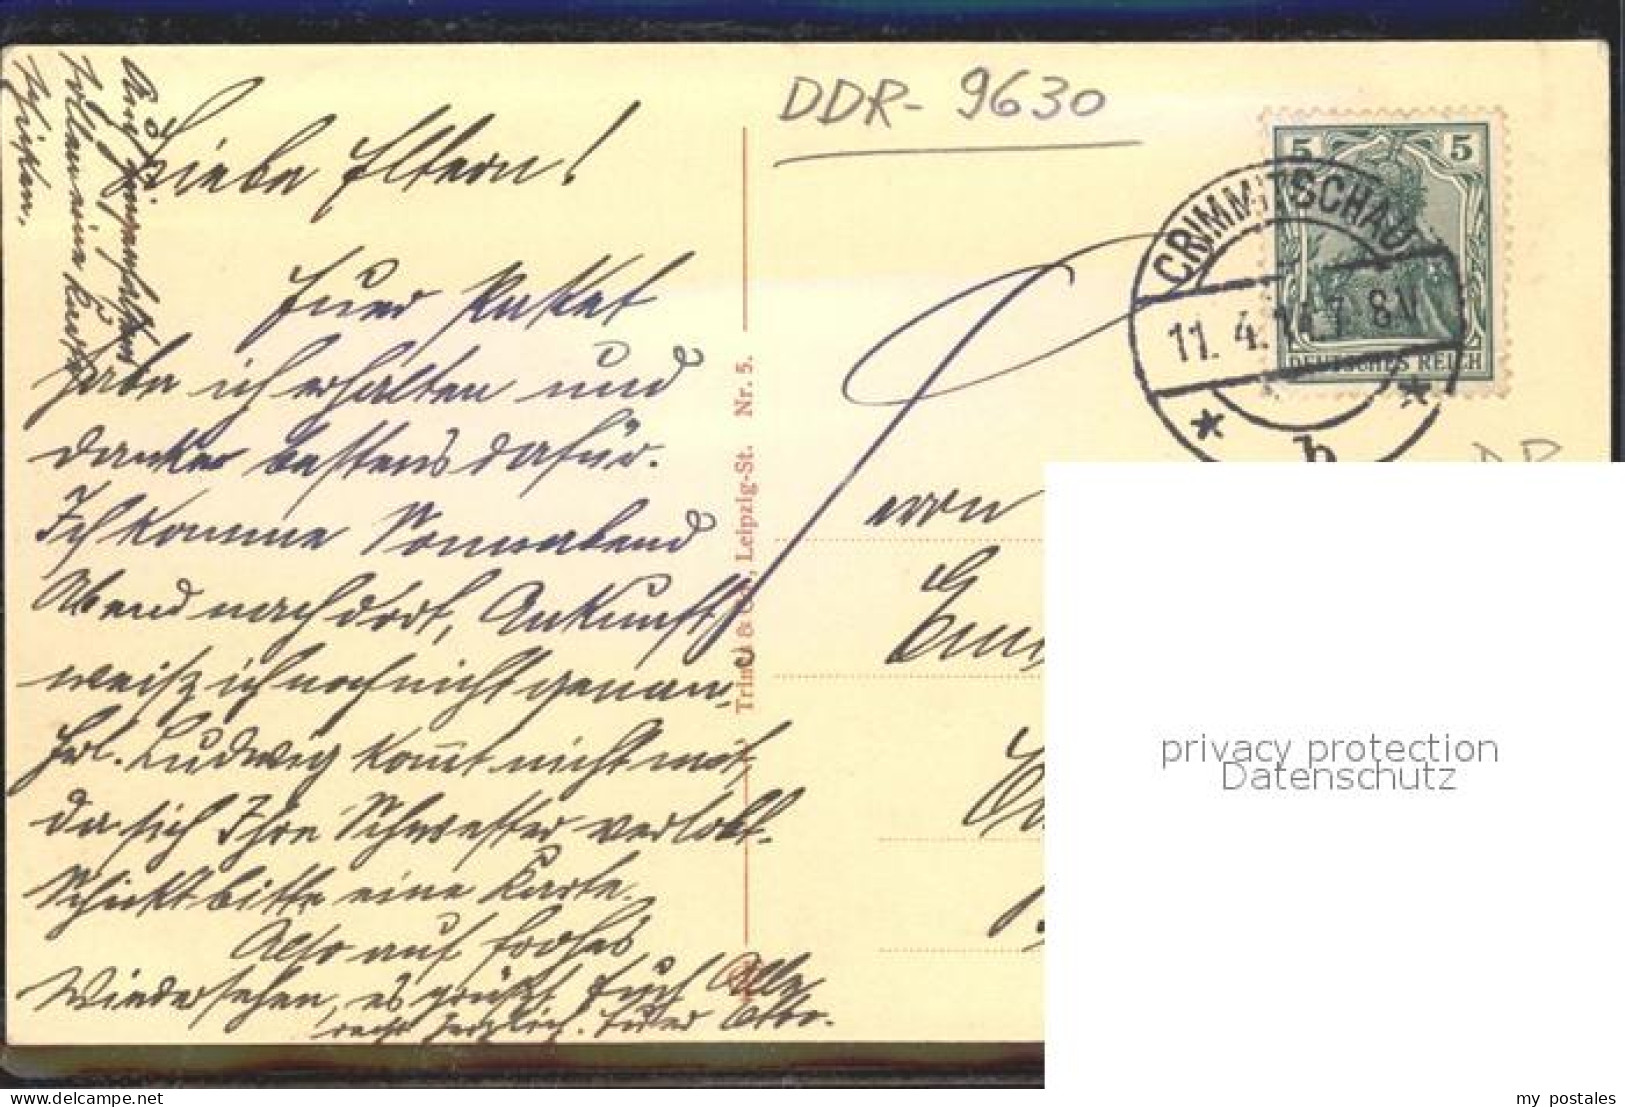 DDR-9630
CRIMMITSCHAU
11.4.14.7-8V.
* b *
5 5
DEUTSCHES REICH
Liebe Eltern!
Euer Paket
habe ich erhalten und
danke bestens dafür.
Ich komme Sonnabend
Abend nach dort, Ankunft
weiß ich noch nicht genau.
Frl. Ludwig kom̄t nicht mit,
da sich Ihre Schwester verlobt.
Schickt bitte eine Karte.
Also auf frohes
Wiedersehen, es grüßt Euch Alle
recht herzlich. Euer Otto.
sollen eine Karte
schicken.
Trinks & Co., Leipzig-St. Nr. 5.
errn
privacy protection
Datenschutz
delcampe.net
my_postales